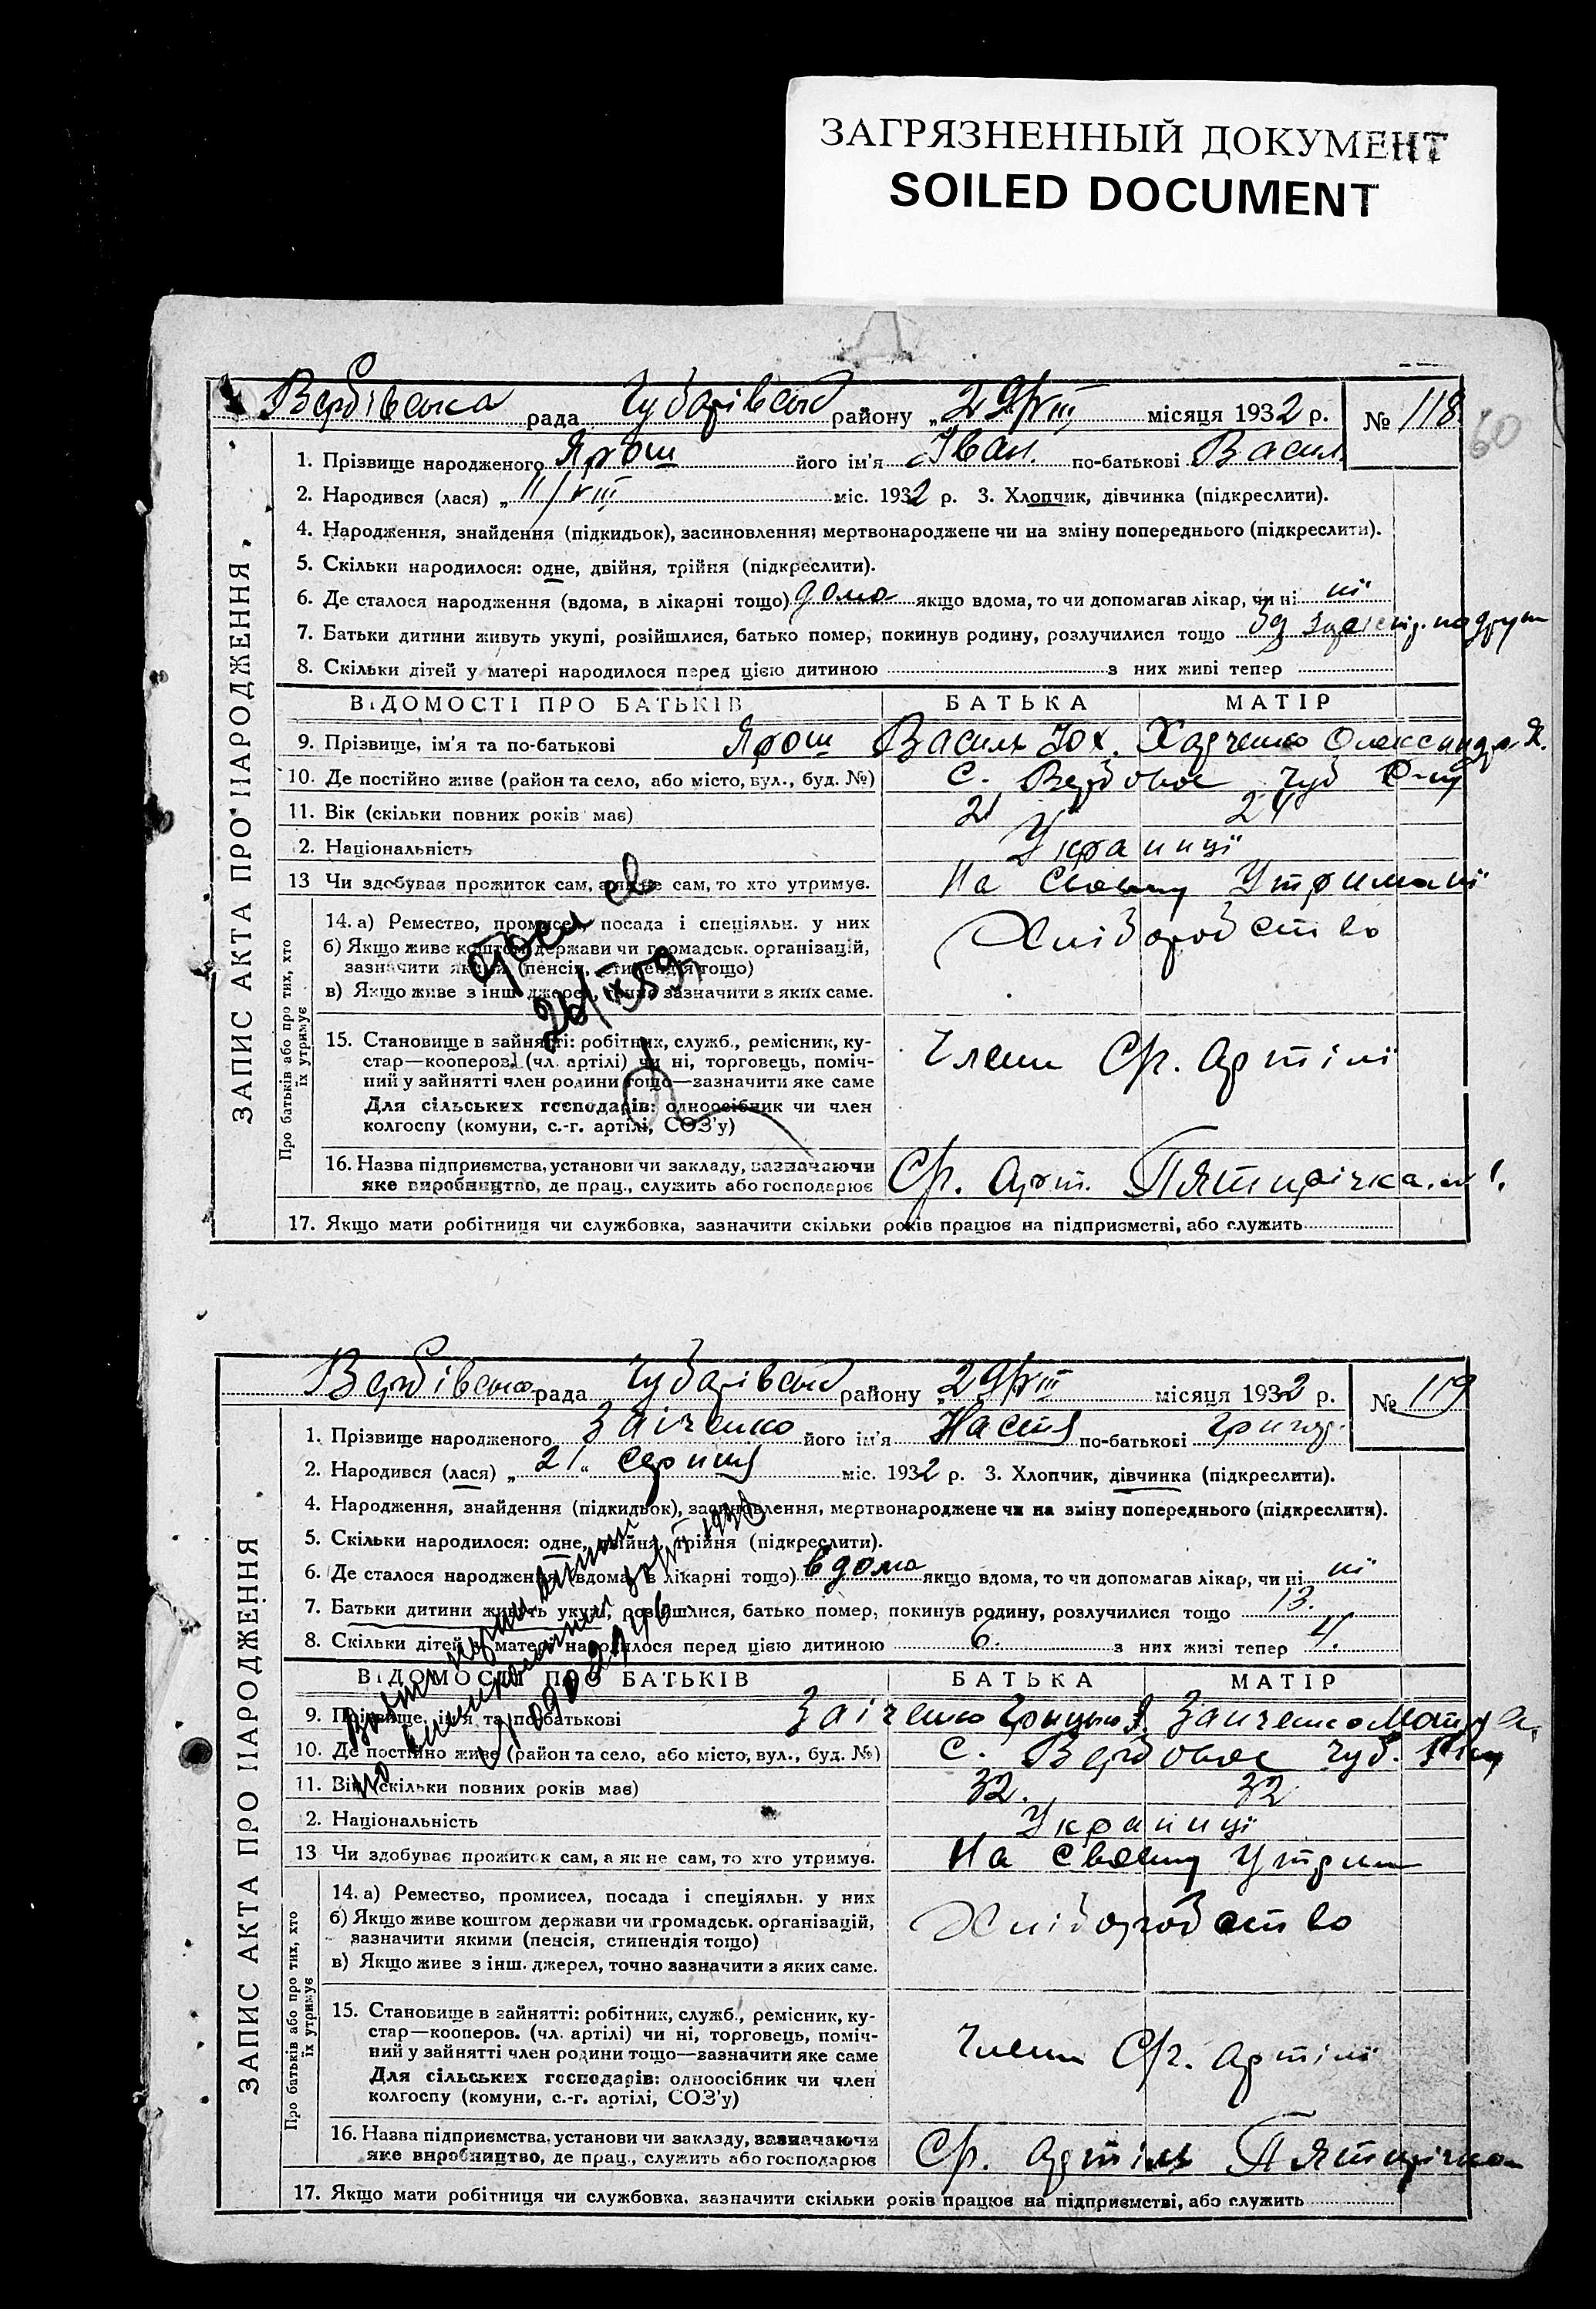 ЗАГРЯЗНЕННЫЙ ДОКУМЕНТ
SOILED DOCUMENT
60
ЗАПИС АКТА ПРО НАРОДЖЕННЯ
Вербівська рада Чубарівськ району „29/VIII місяця 1932 р. № 118
1. Прізвище народженого Ярош його ім’я Іван. по-батькові Васил
2. Народився (лася) „11/VIII міс. 1932 р. 3. Хлопчик, дівчинка (підкреслити).
4. Народження, знайдення (підкидьок), засиновлення; мертвонароджене чи на зміну попереднього (підкреслити).
5. Скільки народилося: одне, двійня, трійня (підкреслити).
6. Де сталося народження (вдома, в лікарні тощо) дома якщо вдома, то чи допомагав лікар, чи ні ні
7. Батьки дитини живуть укупі, розійшлися, батько помер, покинув родину, розлучилися тощо
8. Скільки дітей у матері народилося перед цією дитиною з них живі тепер
ВІДОМОСТІ ПРО БАТЬКІВ БАТЬКА МАТІР
9. Прізвище, ім’я та по-батькові Ярош Василь Йох. Харченко Олександра Я.
10. Де постійно живе (район та село, або місто, вул., буд. №) с. Вербовое Чуб р-ну
11. Вік (скільки повних років має) 21 24
2. Національність Українці
13 Чи здобуває прожиток сам, а як не сам, то хто утримує. На своему Утриманї
Про батьків або про тих, хто їх утримує
14. а) Ремество, промисел, посада і спеціяльн. у них Хліборобство
б) Якщо живе коштом держави чи громадськ. організацій,
зазначити якими (пенсія, стипендія тощо)
в) Якщо живе з інш. джерел, точно зазначити з яких саме.
26/IX 59
15. Становище в зайнятті: робітник, служб., ремісник, ку-
стар—кооперов. (чл. артілі) чи ні, торговець, поміч-
ний у зайнятті член родини тощо—зазначити яке саме
Члени С/г. Артілі
Для сільських господарів: одноосібник чи член
колгоспу (комуни, с.-г. артілі, СОЗ’у)
16. Назва підприємства, установи чи закладу, зазначаючи
яке виробництво, де прац., служить або господарює С/г. Арт. Пятирічка
17. Якщо мати робітниця чи службовка, зазначити скільки років працює на підприємстві, або служить
ЗАПИС АКТА ПРО НАРОДЖЕННЯ
Вербівська рада Чубарівськ району „29/VIII місяця 1932 р. № 119
1. Прізвище народженого Заіченко його ім’я Настя по-батькові Григор.
2. Народився (лася) „21“ серпня міс. 1932 р. 3. Хлопчик, дівчинка (підкреслити).
4. Народження, знайдення (підкидьок), засиновлення, мертвонароджене чи на зміну попереднього (підкреслити).
5. Скільки народилося: одне, двійня, трійня (підкреслити).
6. Де сталося народження (вдома, в лікарні тощо) вдома якщо вдома, то чи допомагав лікар, чи ні ні
7. Батьки дитини живуть укупі, розійшлися, батько помер, покинув родину, розлучилися тощо 13.
8. Скільки дітей у матері народилося перед цією дитиною 6. з них живі тепер 4.
ВІДОМОСТІ ПРО БАТЬКІВ БАТЬКА МАТІР
9. Прізвище, ім’я та по-батькові Заіченко Грицько Заіченко
10. Де постійно живе (район та село, або місто, вул., буд. №) с. Вербовое Чуб. р-ну
11. Вік (скільки повних років має) 32. 32
2. Національність Українці
13 Чи здобуває прожиток сам, а як не сам, то хто утримує. На своему Утрим
Про батьків або про тих, хто їх утримує
14. а) Ремество, промисел, посада і спеціяльн. у них Хліборобство
б) Якщо живе коштом держави чи громадськ. організацій,
зазначити якими (пенсія, стипендія тощо)
в) Якщо живе з інш. джерел, точно зазначити з яких саме.
15. Становище в зайнятті: робітник, служб., ремісник, ку-
стар—кооперов. (чл. артілі) чи ні, торговець, поміч-
ний у зайнятті член родини тощо—зазначити яке саме
Члени С/г. Артілі
Для сільських господарів: одноосібник чи член
колгоспу (комуни, с.-г. артілі, СОЗ’у)
16. Назва підприємства, установи чи закладу, зазначаючи
яке виробництво, де прац., служить або господарює С/г. Артіль Пятирічка
17. Якщо мати робітниця чи службовка, зазначити скільки років працює на підприємстві, або служить